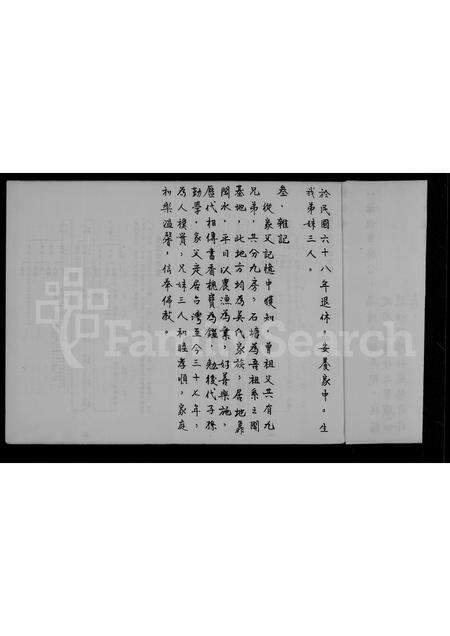 於民國六十八年退休,安養家中。生
我弟妹三人。
叁、雜記
從家父記憶中獲知,曾祖父共有九
兄弟,共分九房,石塘為吾祖系之開
基地,此地方均為吳氏家族,居地靠
閩水,平日以農漁為業,好善樂施,
歷代相傳書香傳寶為鑑,勉後代子孫
勤學,家父定居台灣至今三十七年,
為人樸實,兄妹三人和睦孝順,家庭
和樂溫馨,信奉佛教。
FamilySearch